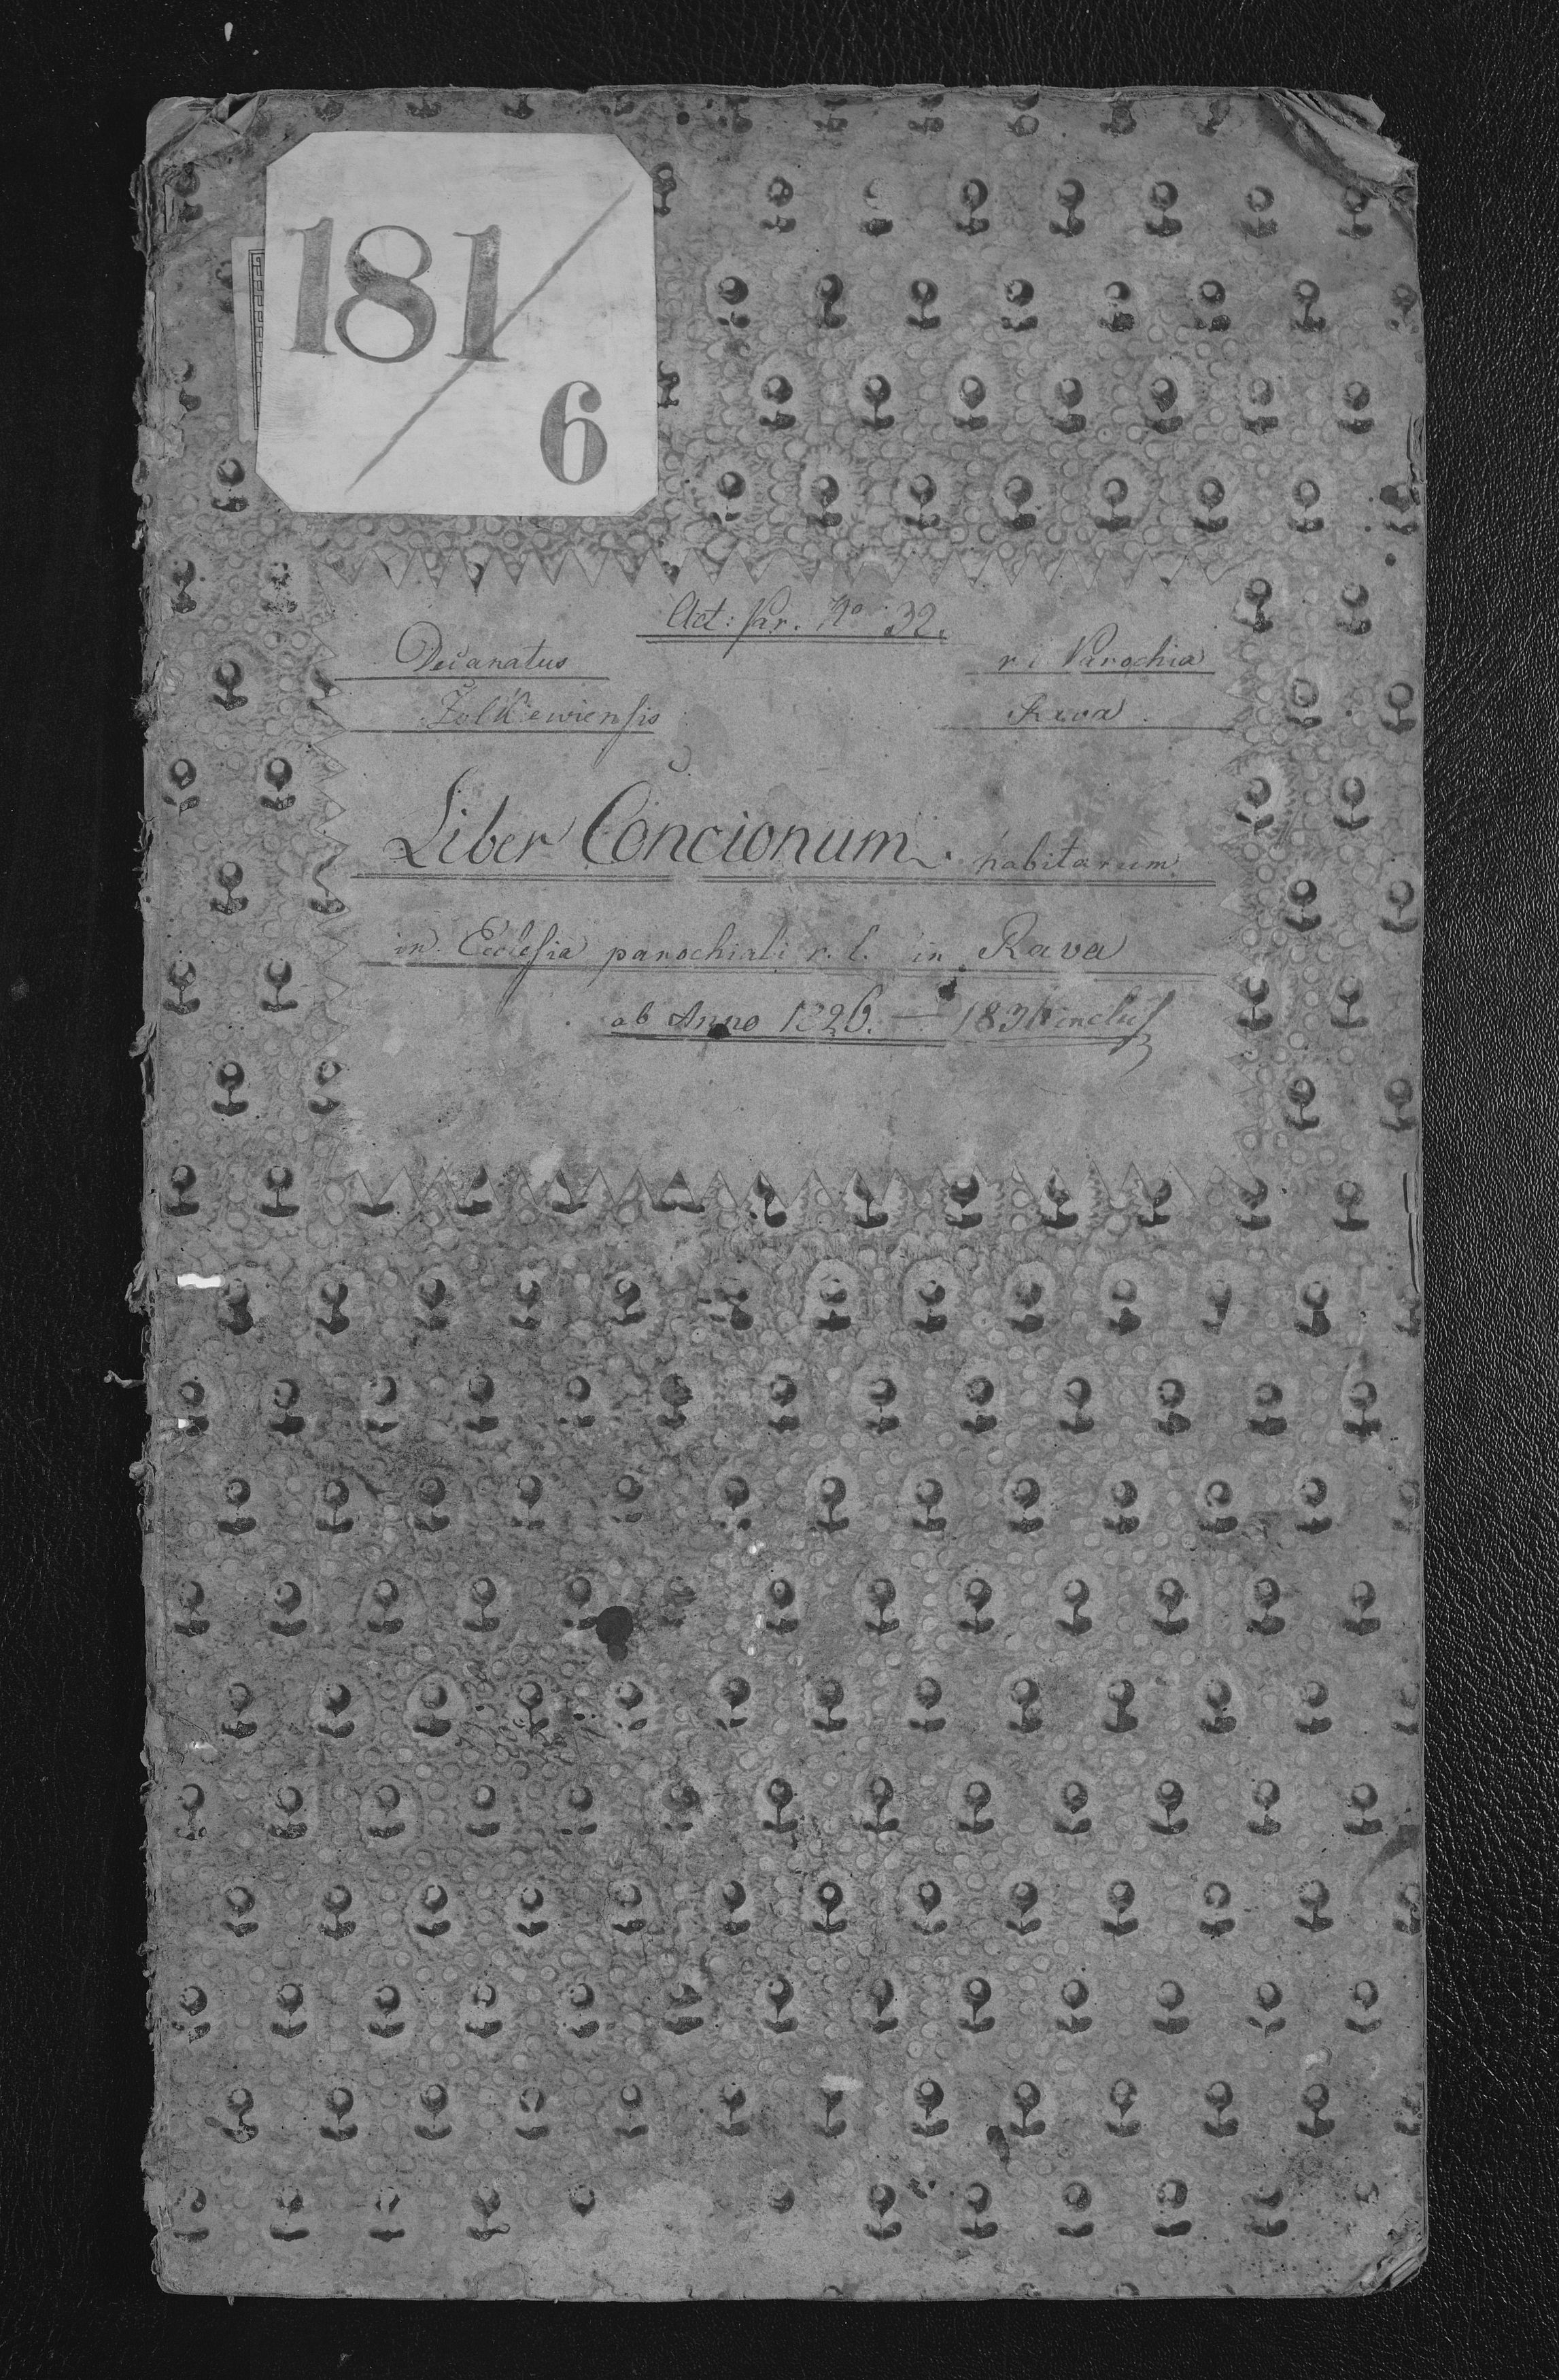 181/6
Act: Par. No 32.
Decanatus
r. l. Parochia
Żołkiewiensis
Rava
Liber Concionum habitarum
in Ecclesia parochiali r. l. in Rava
ab Anno 1826. — inclus